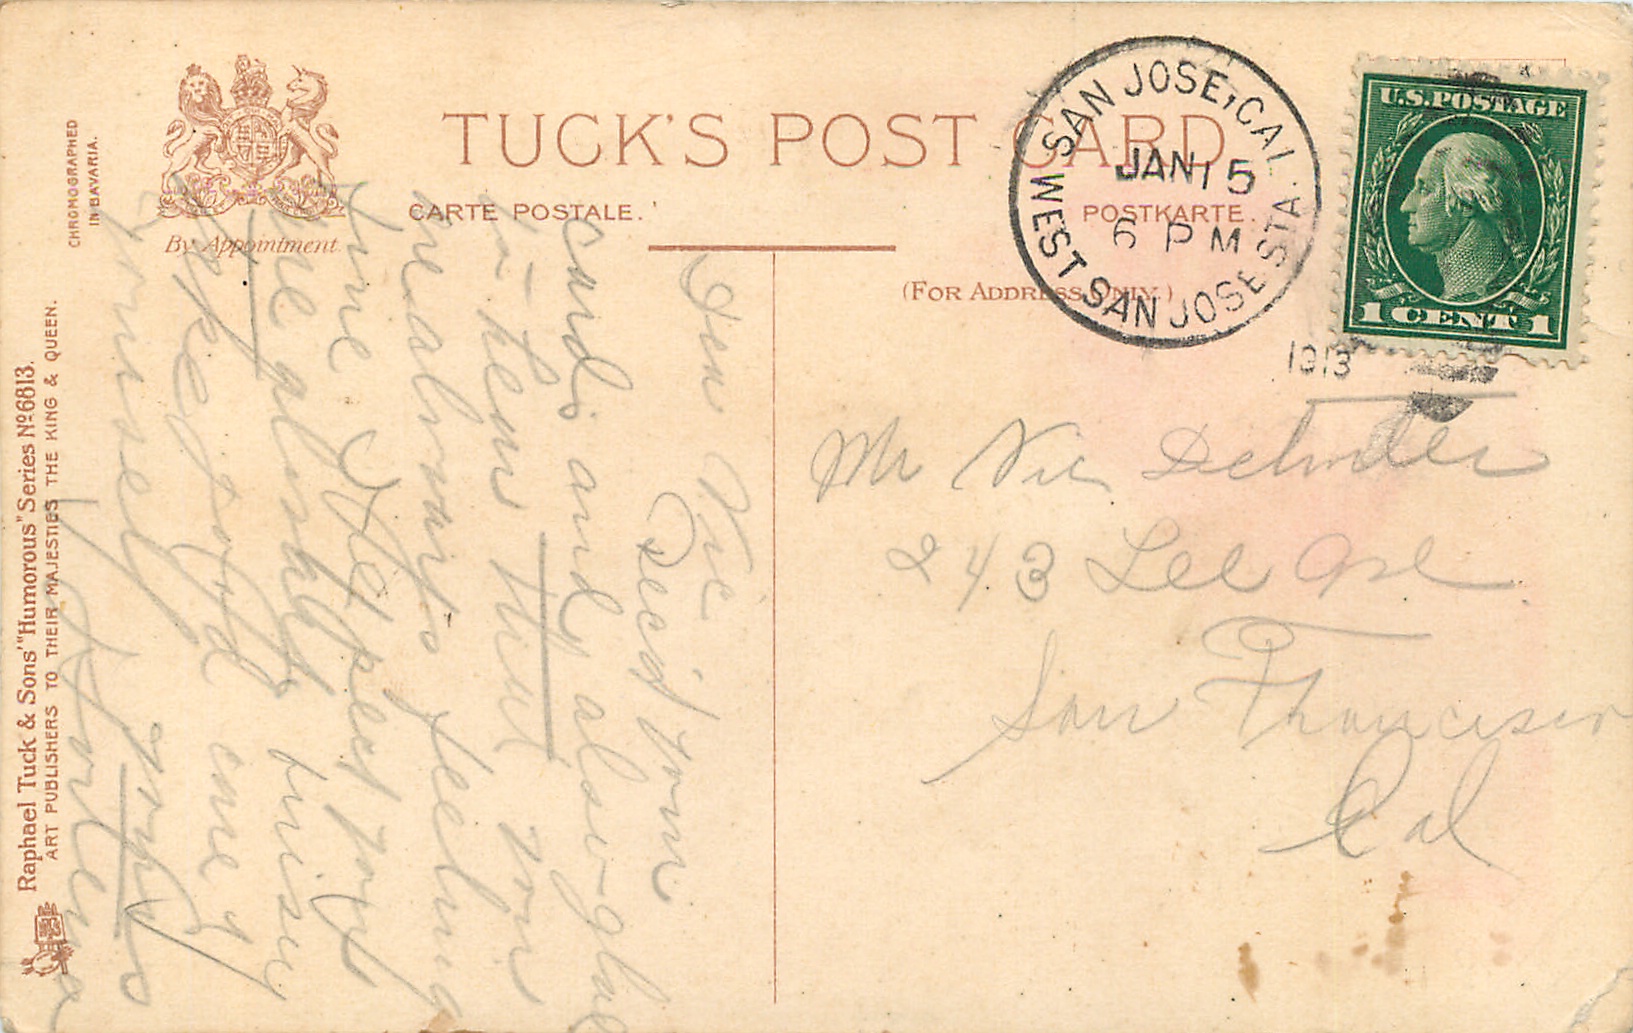 TUCK'S POST CARD
CARTE POSTALE.
POSTKARTE.
(FOR ADDRESS ONLY.)
By Appointment.
CHROMOGRAPHED
IN BAVARIA.
Raphael Tuck & Sons' "Humorous" Series No 6813.
ART PUBLISHERS TO THEIR MAJESTIES THE KING & QUEEN.
SAN JOSE, CAL.
JAN 15
6 PM
1913
WEST SAN JOSE STA.
U.S. POSTAGE
1 CENT 1
Mr Vic
243 Lee Ave
San Francisco
Cal
Dear Vic
Rec'd your
card and also glad
to hear that you
are always feeling
fine I expect you
are
good one
yourself
yours